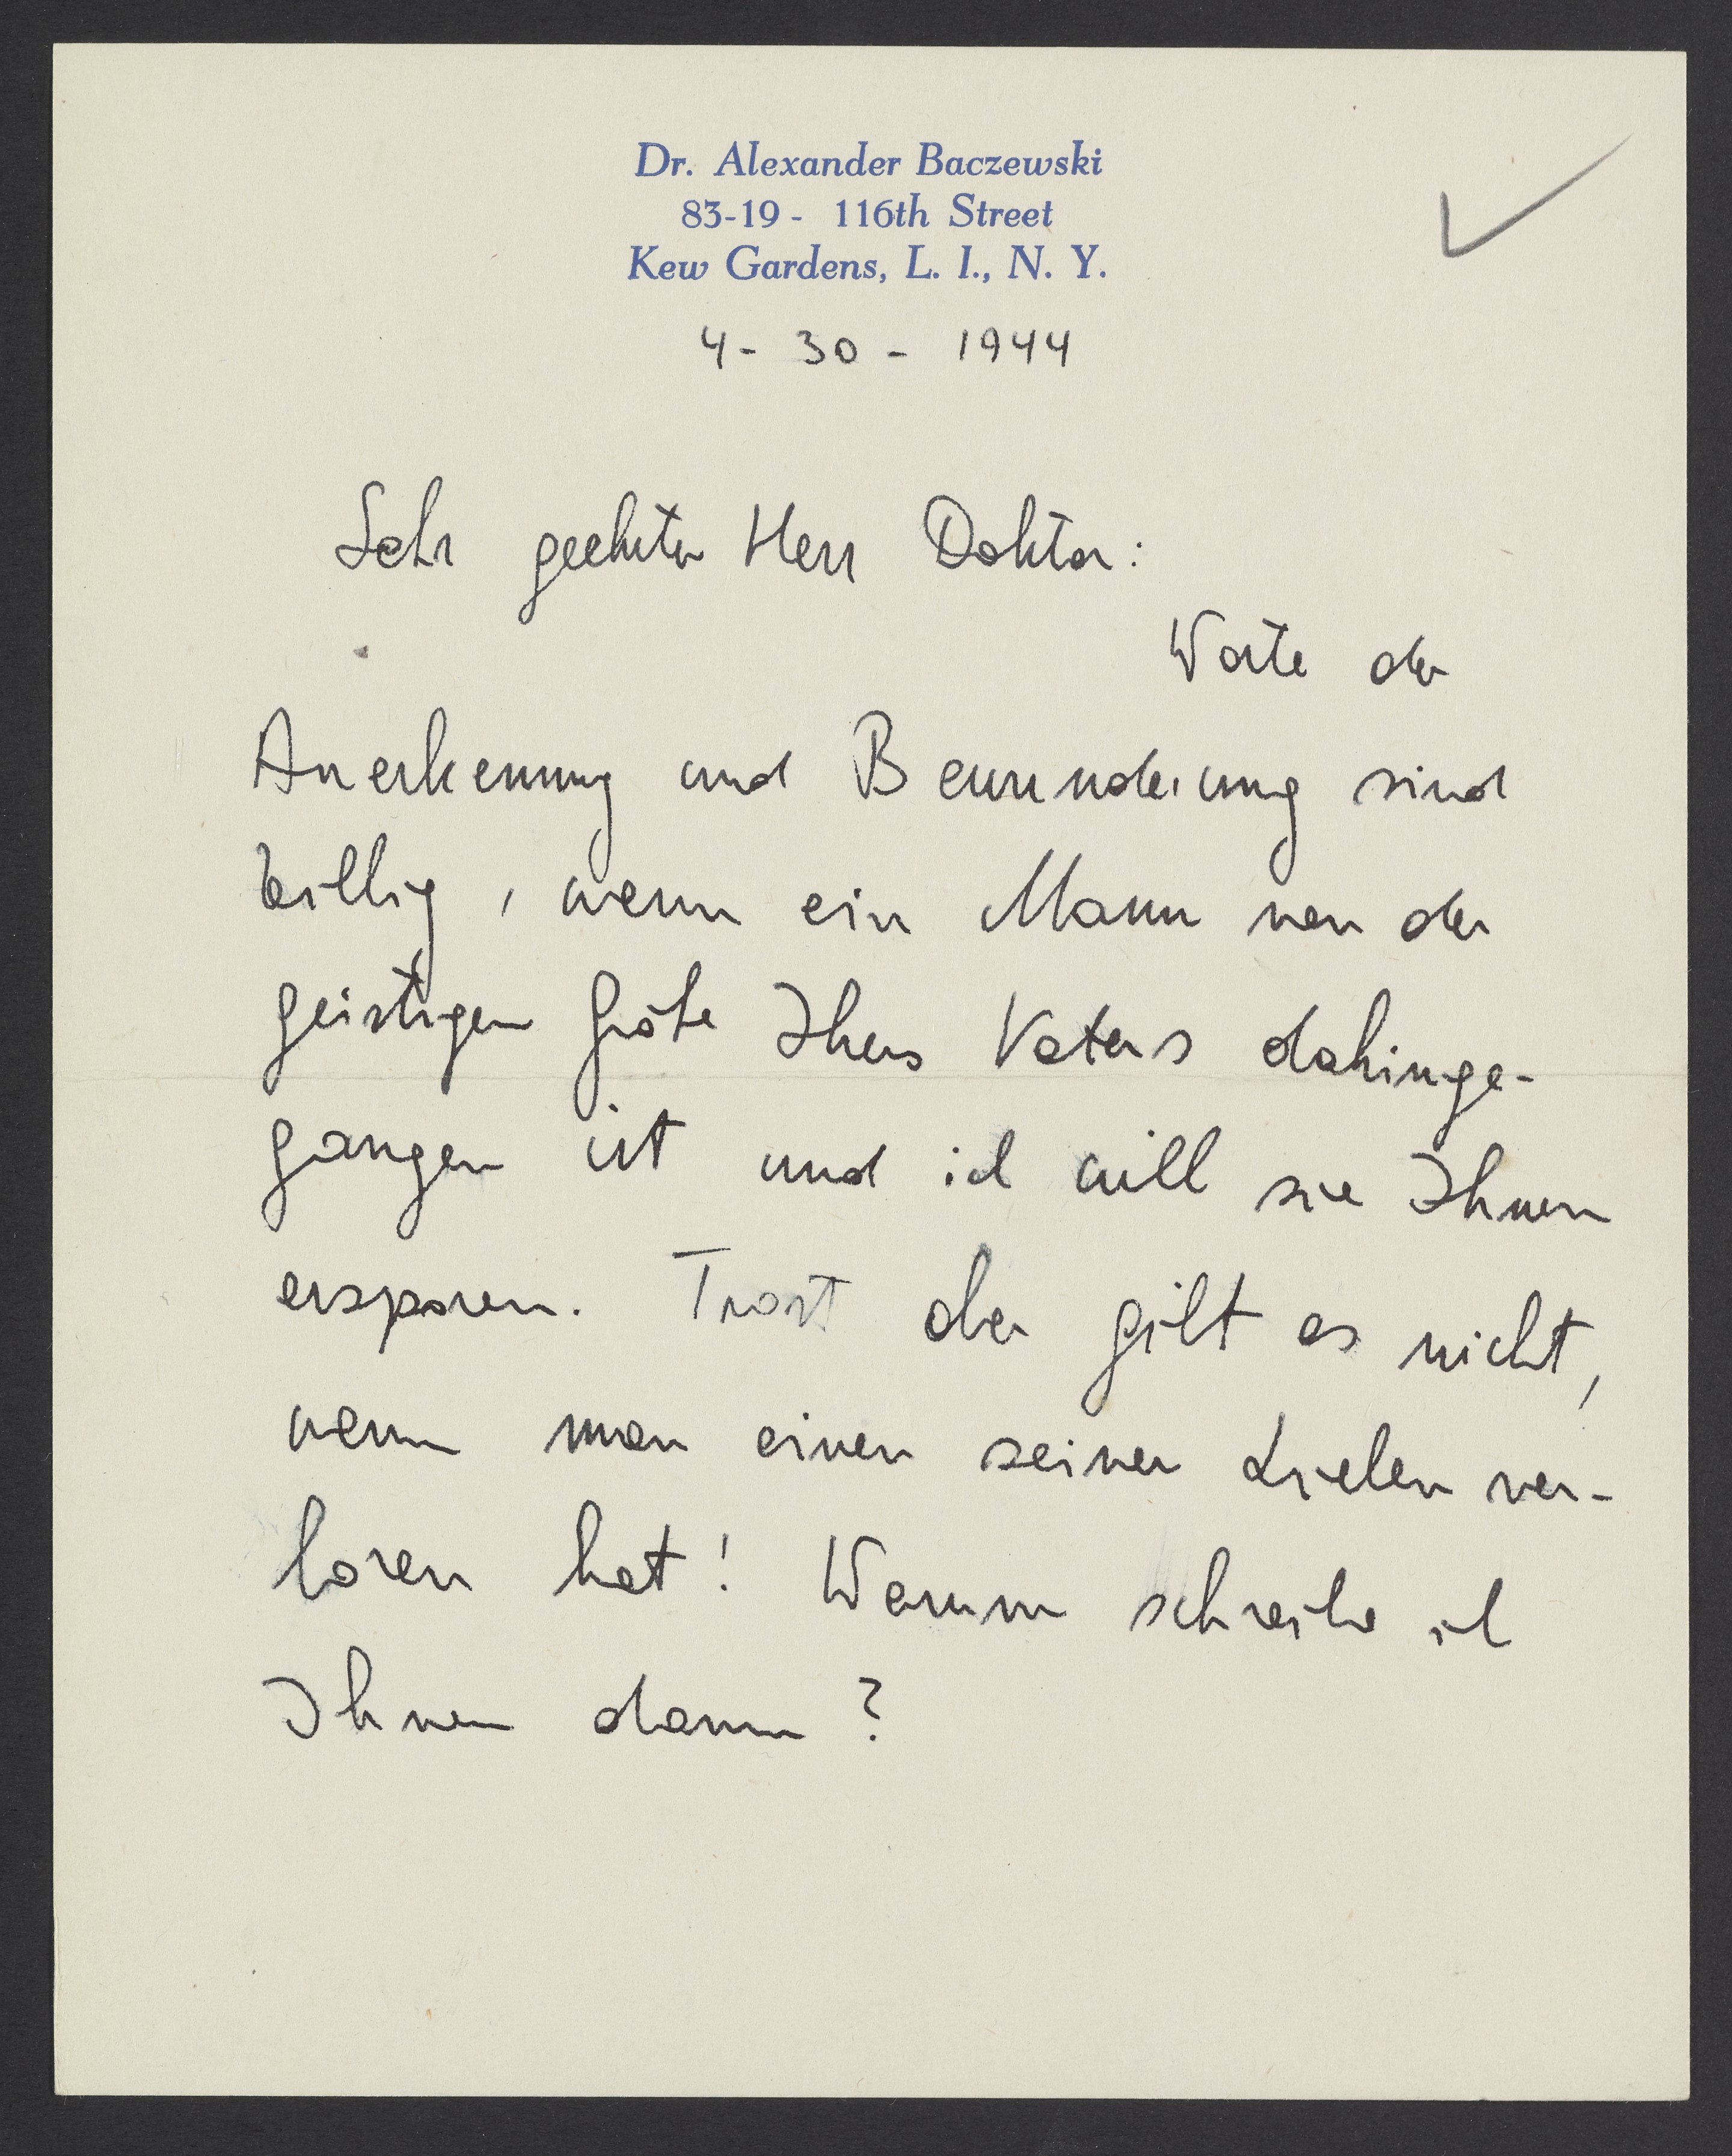 Dr. Alexander Baczewski
83-19 - 116th Street
Kew Gardens, L. I., N. Y.
4 - 30 - 1944
Sehr geehrter Herr Doktor:
Worte der
Anerkennung und Bewunderung sind
billig, wenn ein Mann von der
geistigen Größe Ihres Vaters dahinge-
gangen ist und ich will sie Ihnen
ersparen. Trost aber gibt es nicht,
wenn man einen seiner Lieben ver-
loren hat! Warum schreibe ich
Ihnen dann?